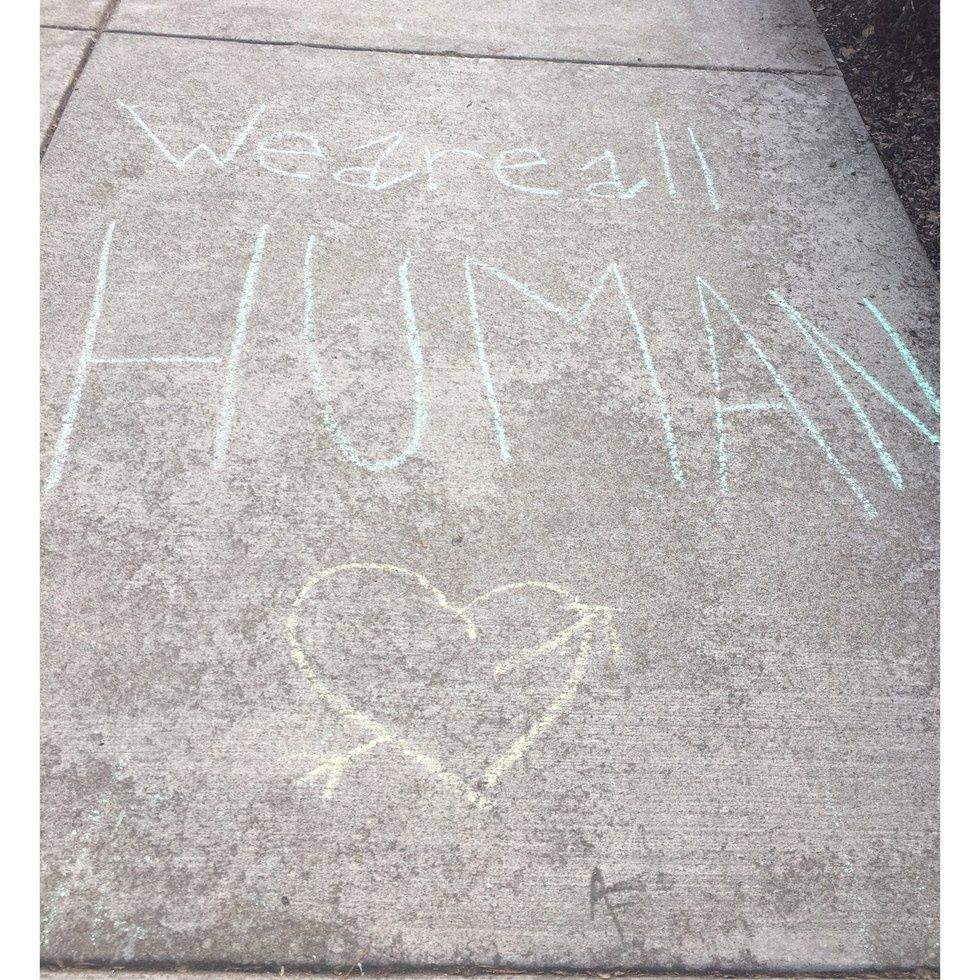 We are all
HUMAN
AF